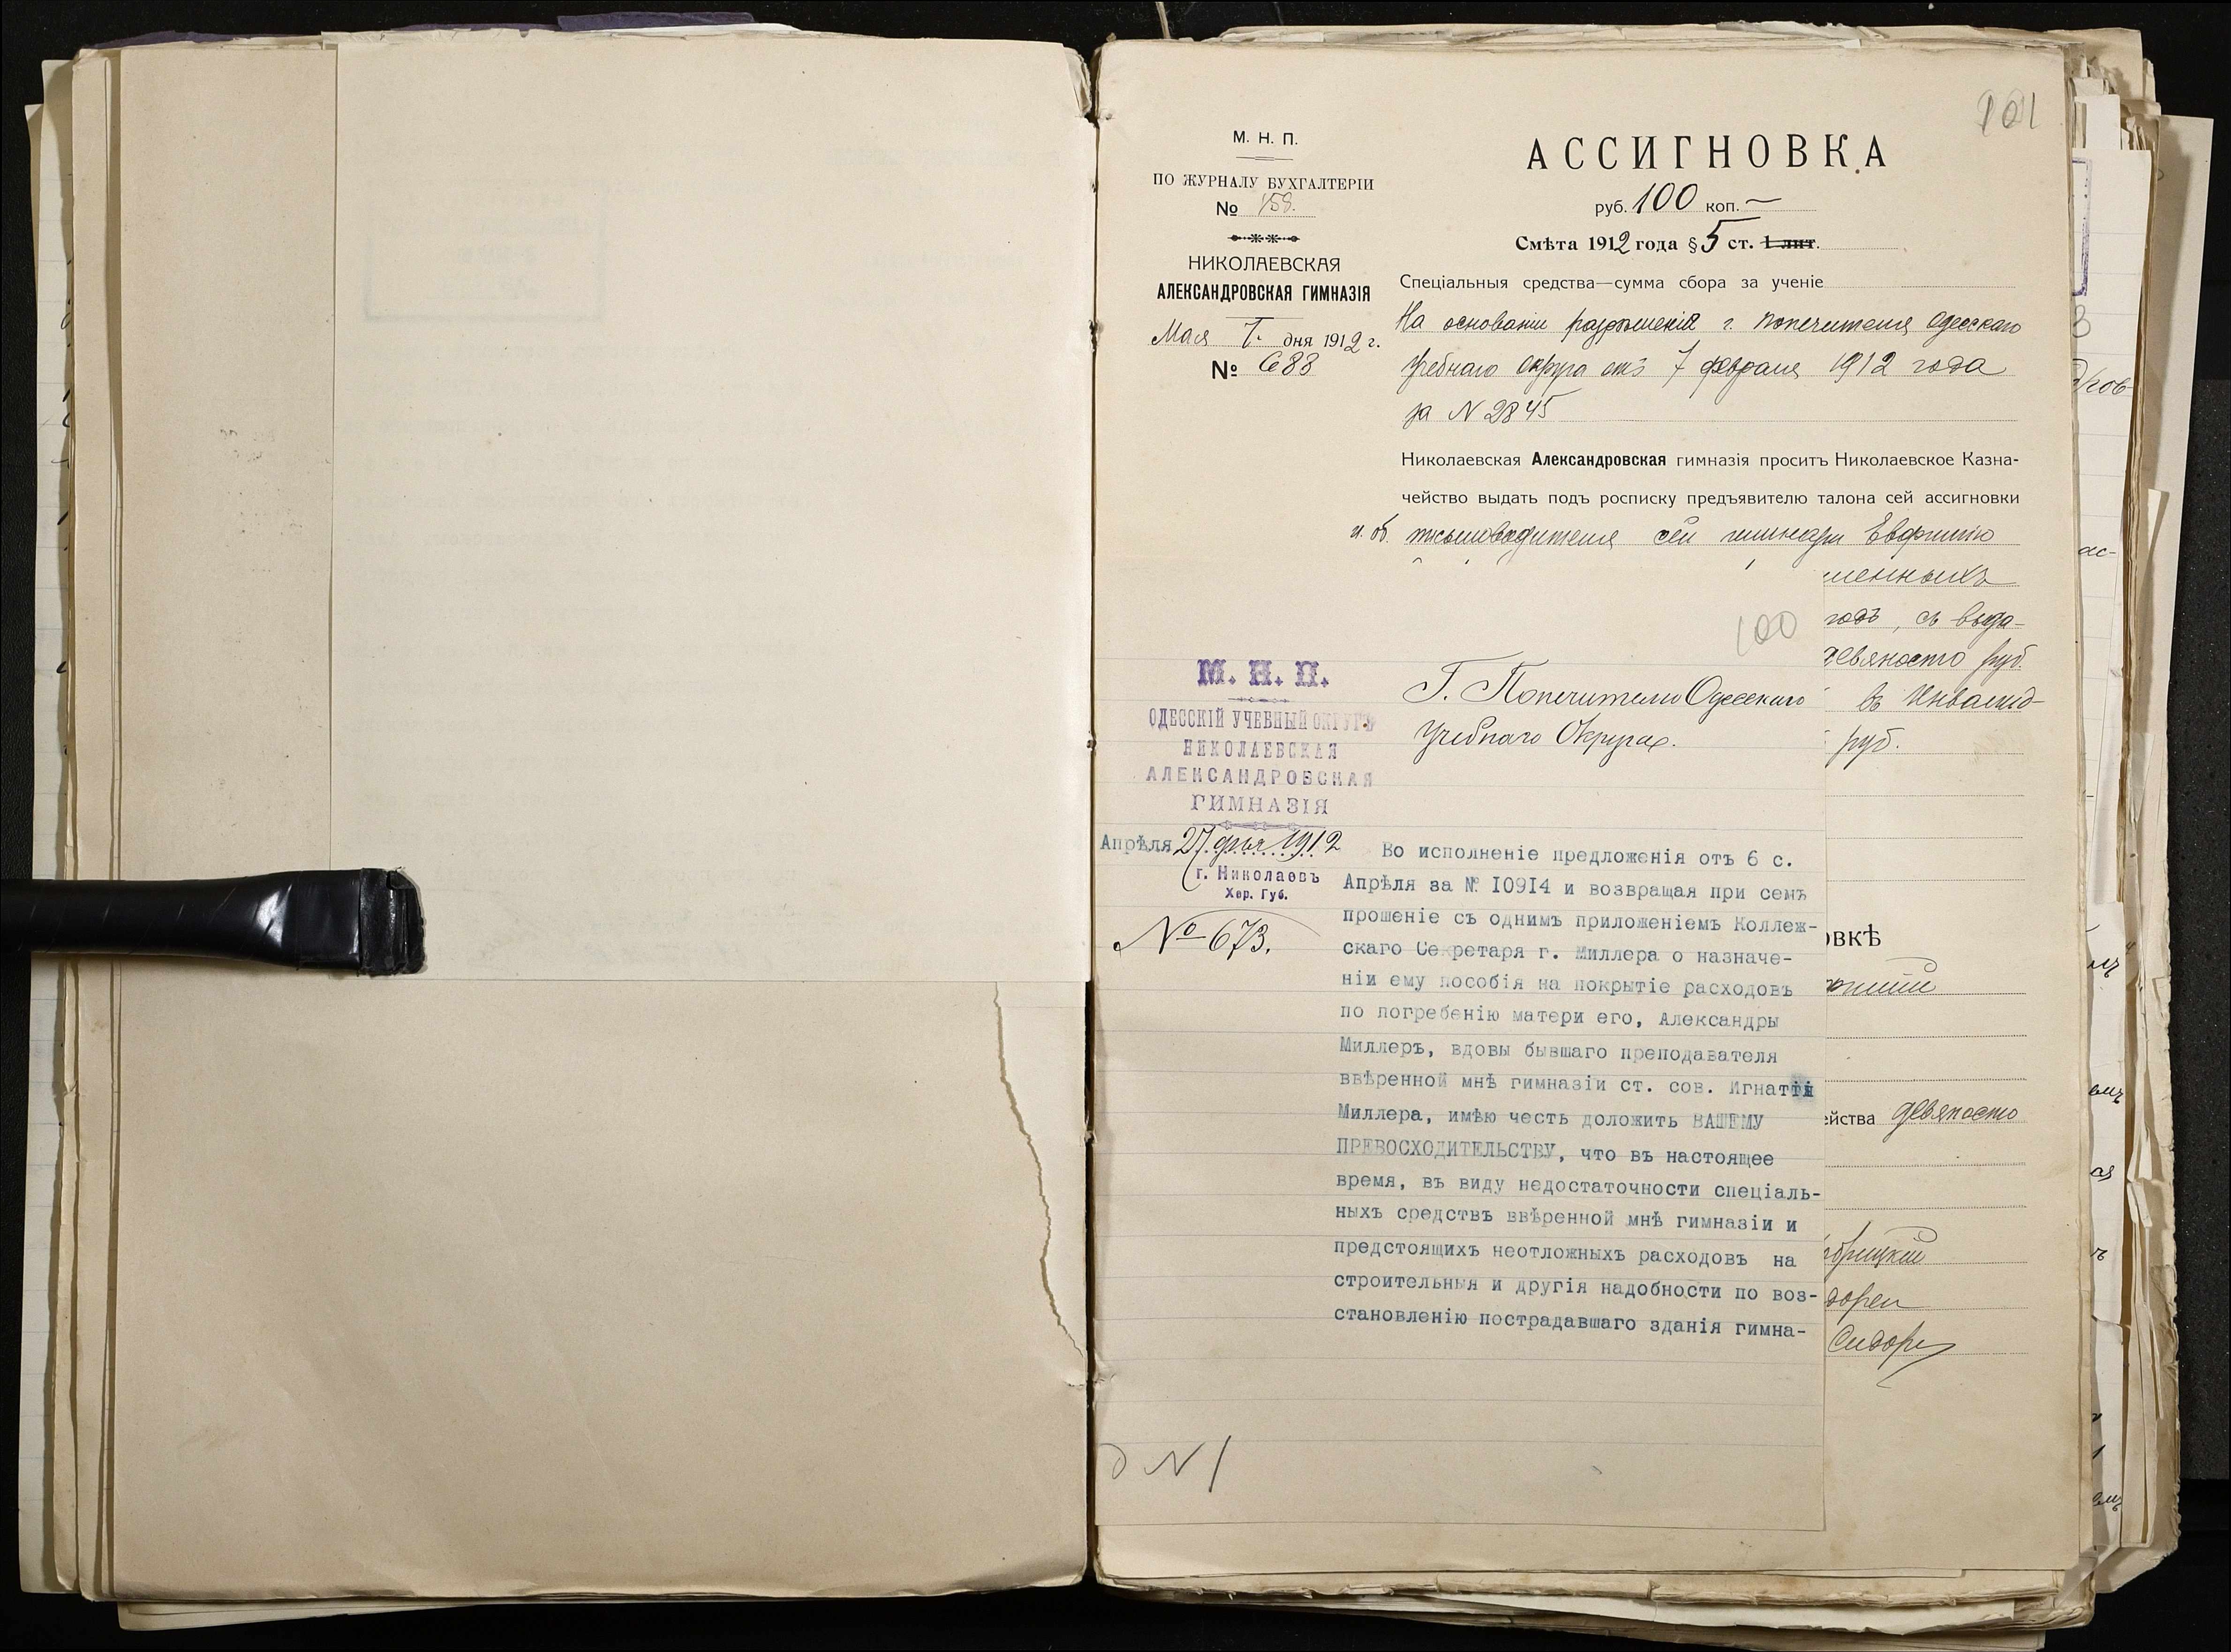 101
М. Н. П.
ПО ЖУРНАЛУ БУХГАЛТЕРІИ
№ 158.
НИКОЛАЕВСКАЯ
АЛЕКСАНДРОВСКАЯ ГИМНАЗІЯ
Мая 7. дня 1912 г.
№ 683
АССИГНОВКА
руб. 100 коп. —
Смѣта 1912 года § 5 ст. 1 лит.
Спеціальныя средства—сумма сбора за ученіе
На основаніи разрѣшенія г. Попечителя Одесскаго
Учебнаго Округа отъ 7 февраля 1912 года
за N 2845
Николаевская Александровская гимназія проситъ Николаевское Казна-
чейство выдать подъ росписку предъявителю талона сей ассигновки
и. об. письмоводителя сей гимназіи Евфимію
менныхъ
годъ, съ выда-
девяносто руб.
въ Инвалид-
руб.
овкѣ
ейства девяносто
Сидор
100
М. Н. П.
ОДЕССКІЙ УЧЕБНЫЙ ОКРУГЪ
НИКОЛАЕВСКАЯ
АЛЕКСАНДРОВСКАЯ
ГИМНАЗІЯ
Апрѣля 27 дня 1912
г. Николаевъ
Хер. Губ.
№ 673.
Г. Попечителю Одесскаго
Учебнаго Округа.
Во исполненіе предложенія отъ 6 с.
Апрѣля за № I09I4 и возвращая при семъ
прошеніе съ однимъ приложеніемъ Коллеж-
скаго Секретаря г. Миллера о назначе-
ніи ему пособія на покрытіе расходовъ
по погребенію матери его, Александры
Миллеръ, вдовы бывшаго преподавателя
ввѣренной мнѣ гимназіи ст. сов. Игнатія
Миллера, имѣю честь доложить ВАШЕМУ
ПРЕВОСХОДИТЕЛЬСТВУ, что въ настоящее
время, въ виду недостаточности спеціаль-
ныхъ средствъ ввѣренной мнѣ гимназіи и
предстоящихъ неотложныхъ расходовъ на
строительныя и другія надобности по воз-
становленію пострадавшаго зданія гимна-
д N 1